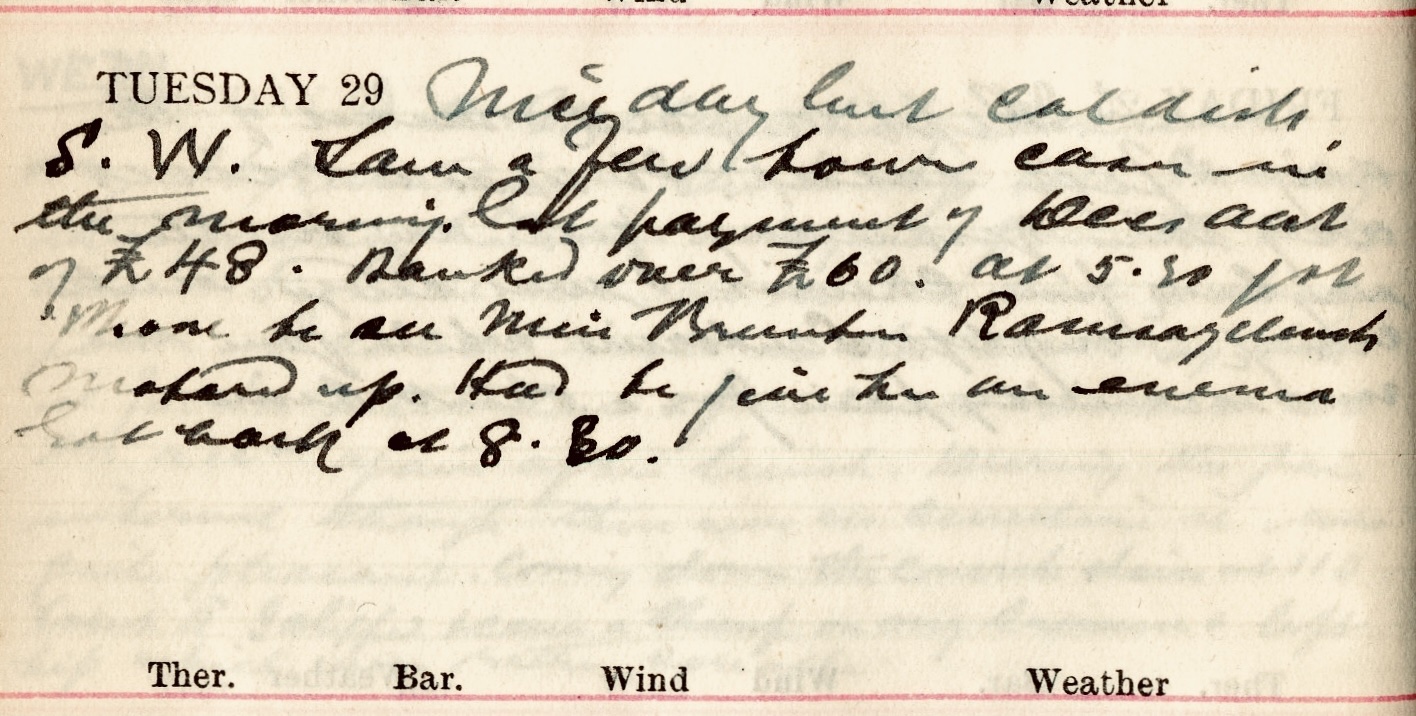 TUESDAY 29 Nice day but coldish
S. W. Saw a few town cases in
the morning. Got payment of Dees acct
of £48. Banked over £60. at 5.30 got
'Phone to see Miss Brunton Ramsaycleuch
Motored up. Had to give her an enema
Got back at 8.30.
Ther. Bar. Wind Weather